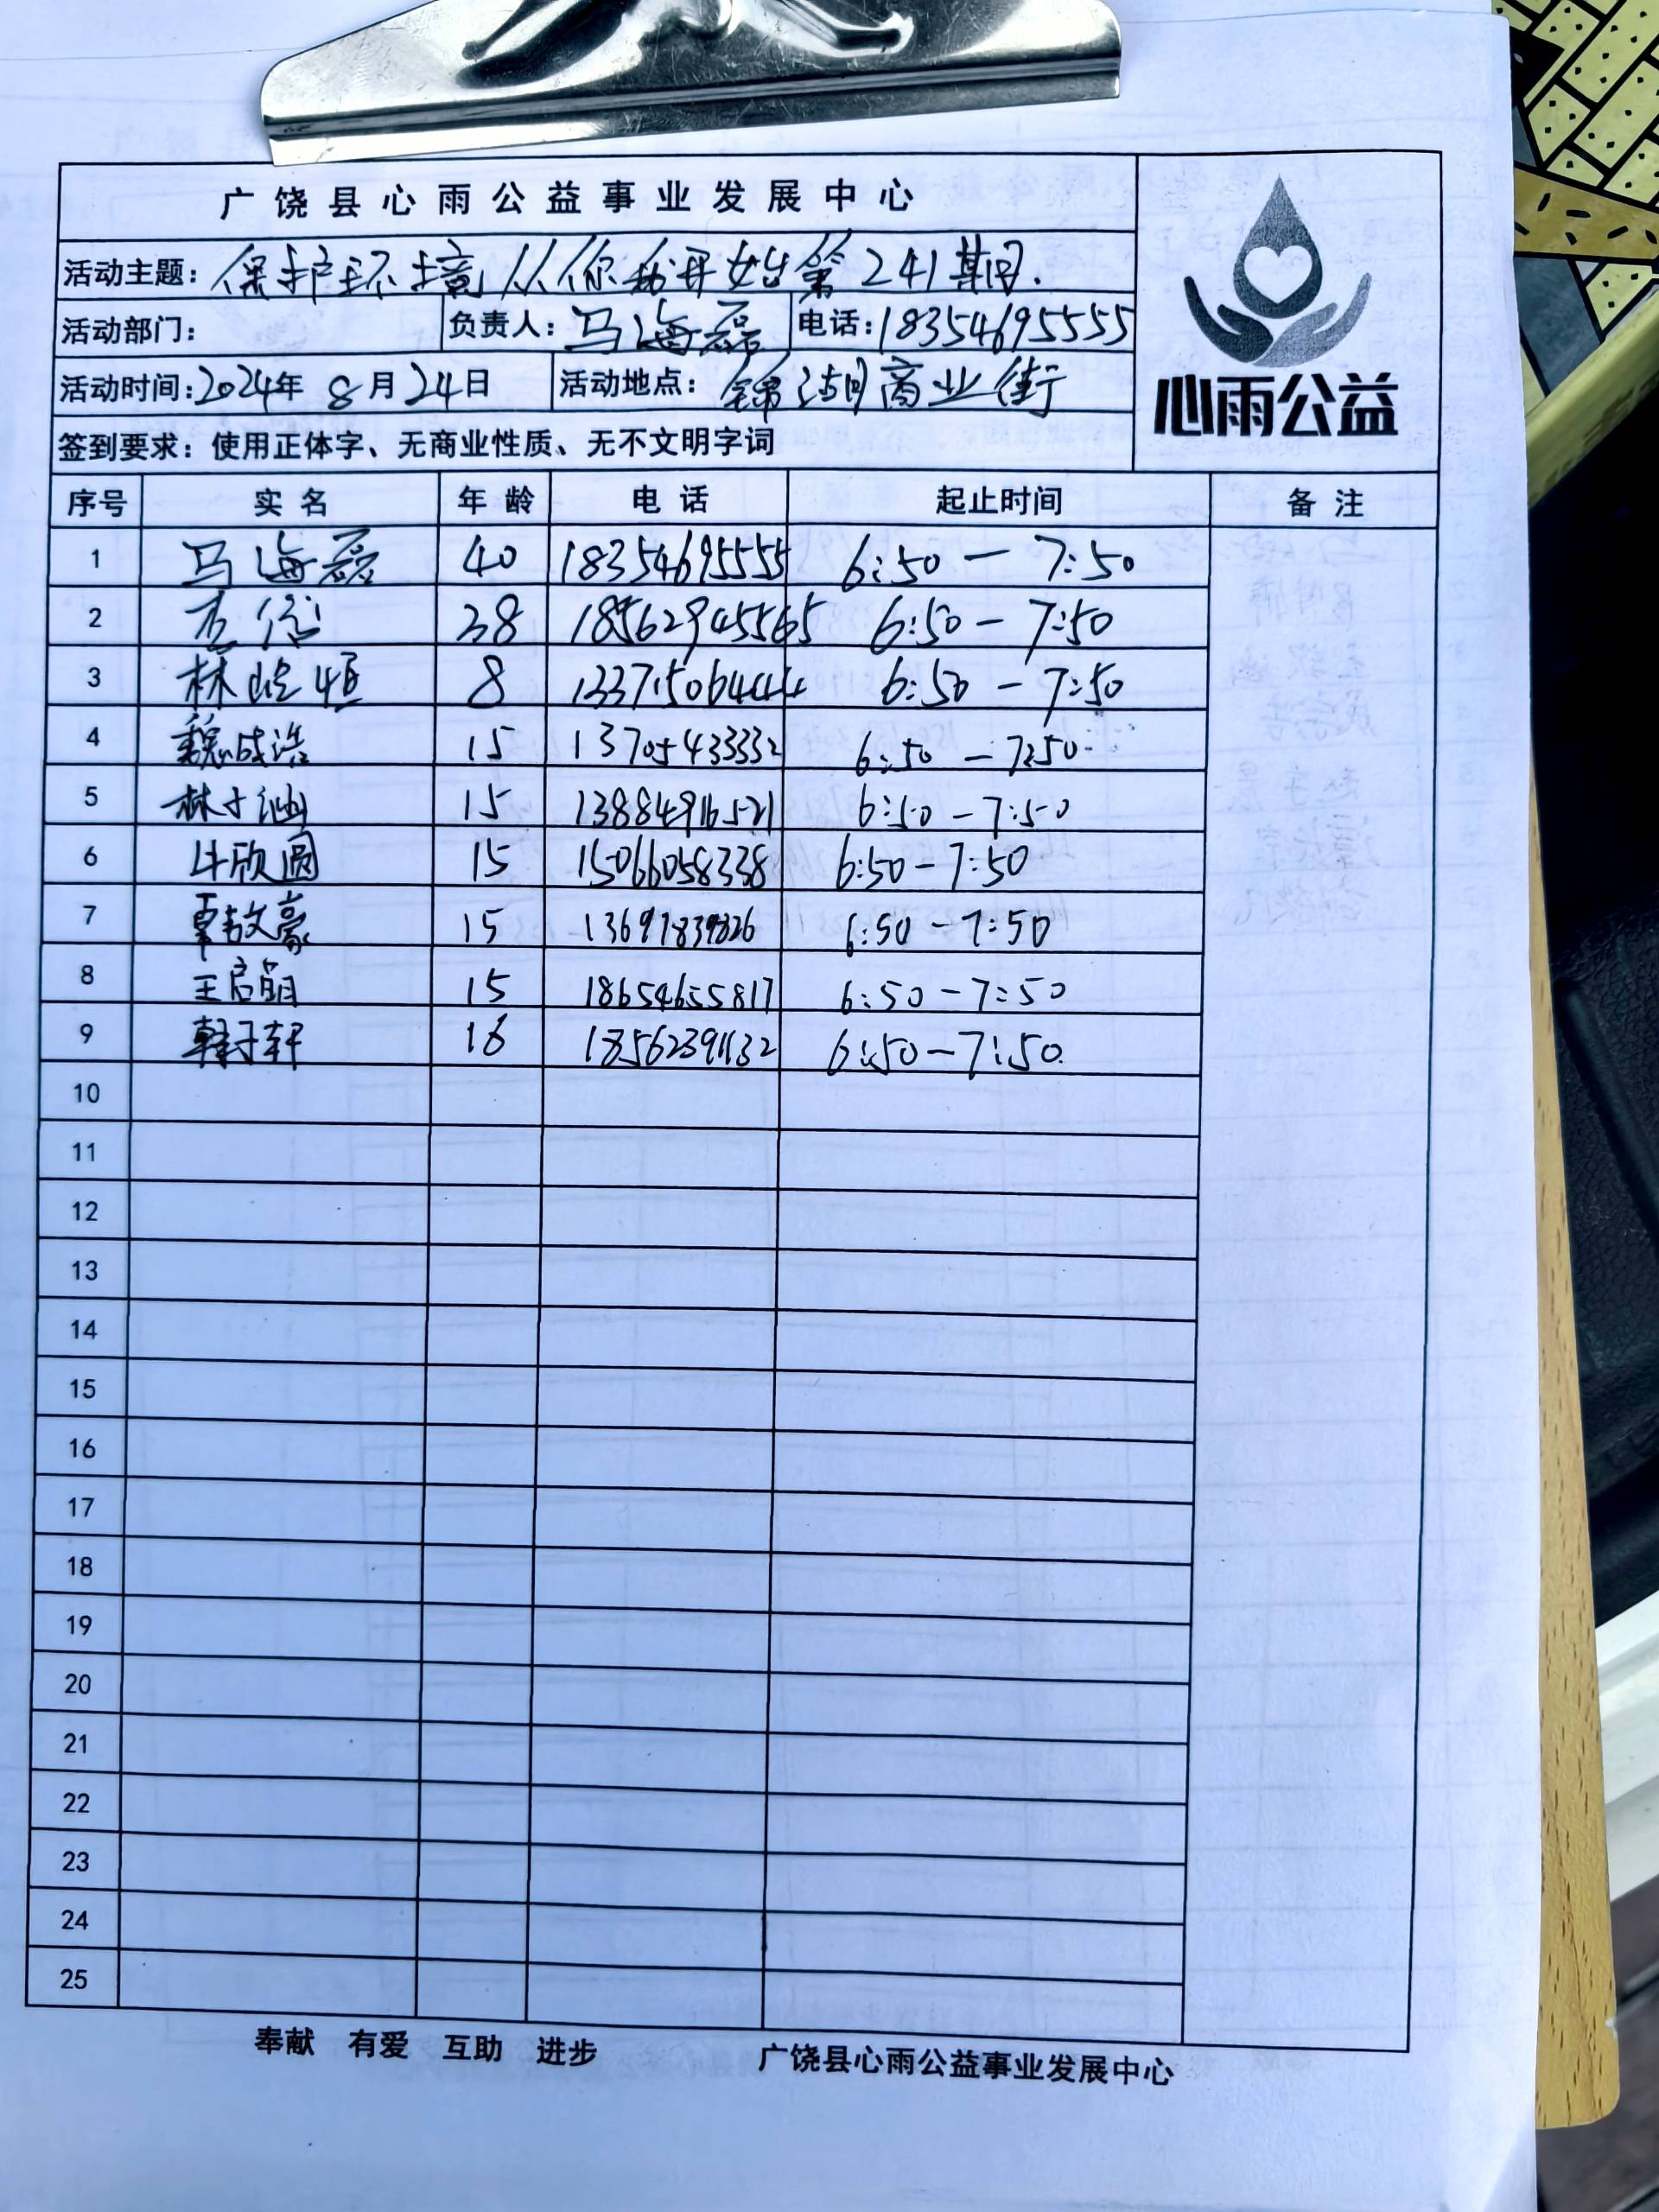 广饶县心雨公益事业发展中心
活动主题：保护环境从你我开始第241期.
活动部门： 负责人：马海磊 电话：18354695555
活动时间：2024年8月24日 活动地点：锦湖商业街
签到要求：使用正体字、无商业性质、无不文明字词
心雨公益
序号 实名 年龄 电话 起止时间 备注
1 马海磊 40 18354695555 6:50—7:50
2 38 18562945565 6:50—7:50
3 林 恒 8 13371506444 6:50—7:50
4 魏成浩 15 13705433332 6:50—7:50
5 林 涵 15 13884916521 6:50—7:50
6 欣圆 15 15066058338 6:50—7:50
7 豪 15 6:50—7:50
8 王启萌 15 18654655817 6:50—7:50
9 韩子轩 18562391132 6:50—7:50
10
11
12
13
14
15
16
17
18
19
20
21
22
23
24
25
奉献 有爱 互助 进步 广饶县心雨公益事业发展中心